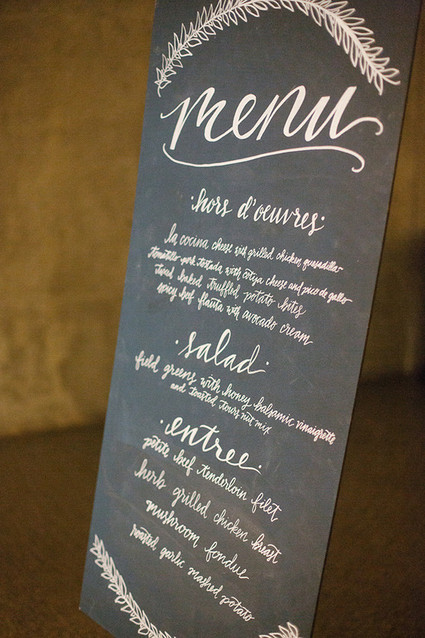 menu
·hors d'oeuvres·
la cocina cheese with grilled chicken quesadilla
tomatillo-pork tostada with cotija cheese and pico de gallo
twice baked truffled potato bites
spicy beef flauta with avocado cream
·salad·
field greens with honey balsamic vinaigrette
and toasted tours nut mix
·entree·
petite beef tenderloin filet
herb grilled chicken breast
mushroom fondue
roasted garlic mashed potato